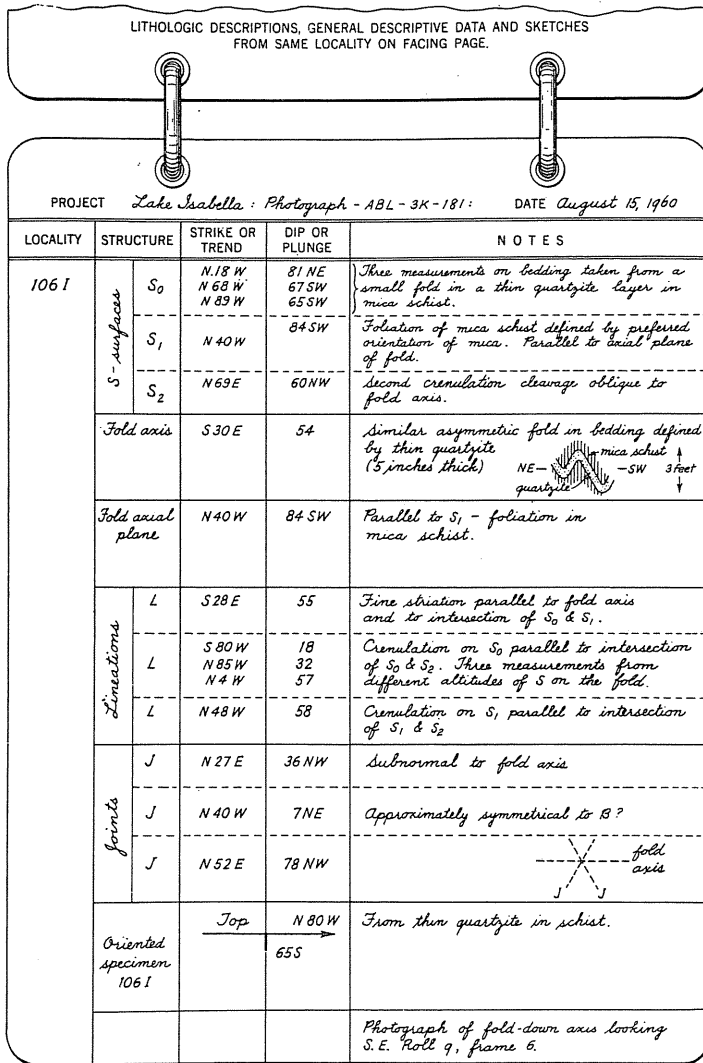 LITHOLOGIC DESCRIPTIONS, GENERAL DESCRIPTIVE DATA AND SKETCHES
FROM SAME LOCALITY ON FACING PAGE.
PROJECT Lake Isabella : Photograph - ABL - 3K - 181 : DATE August 15, 1960
LOCALITY STRUCTURE STRIKE OR TREND DIP OR PLUNGE NOTES
106 I
S-surfaces
S0
N.18 W 81 NE
N 68 W 67 SW
N 89 W 65 SW
Three measurements on bedding taken from a
small fold in a thin quartzite layer in
mica schist.
S1 N 40 W 84 SW
Foliation of mica schist defined by preferred
orientation of mica. Parallel to axial plane
of fold.
S2 N 69 E 60 NW
Second crenulation cleavage oblique to
fold axis.
Fold axis S 30 E 54
Similar asymmetric fold in bedding defined
by thin quartzite
(5 inches thick)
mica schist
NE — — SW 3 feet
quartzite
Fold axial
plane
N 40 W 84 SW
Parallel to S1 - foliation in
mica schist.
Lineations
L S 28 E 55
Fine striation parallel to fold axis
and to intersection of S0 & S1.
L
S 80 W 18
N 85 W 32
N 4 W 57
Crenulation on S0 parallel to intersection
of S0 & S2. Three measurements from
different altitudes of S on the fold.
L N 48 W 58
Crenulation on S1 parallel to intersection
of S1 & S2
Joints
J N 27 E 36 NW Subnormal to fold axis
J N 40 W 7 NE Approximately symmetrical to B?
J N 52 E 78 NW
fold
axis
J J
Oriented
specimen
106 I
Top N 80 W
65 S
From thin quartzite in schist.
Photograph of fold-down axis looking
S.E. Roll 9, frame 6.